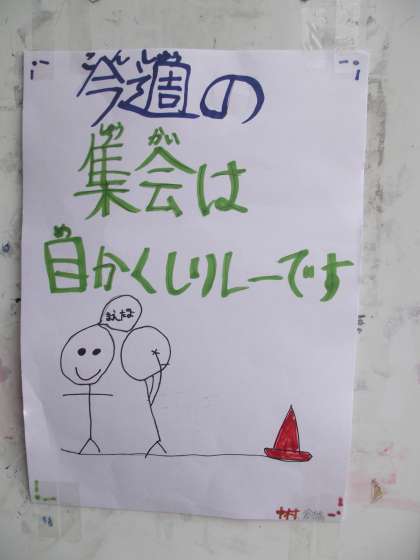 こんしゅう
今週の
しゅう かい
集会は
め
目かくしリレーです
まえだよ